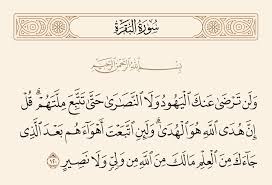 سُورَةُ البَقَرَةِ
بِسْمِ ٱللَّهِ ٱلرَّحْمَٰنِ ٱلرَّحِيمِ
وَلَن تَرْضَىٰ عَنكَ ٱلْيَهُودُ وَلَا ٱلنَّصَٰرَىٰ حَتَّىٰ تَتَّبِعَ مِلَّتَهُمْ ۗ قُلْ
إِنَّ هُدَى ٱللَّهِ هُوَ ٱلْهُدَىٰ ۗ وَلَئِنِ ٱتَّبَعْتَ أَهْوَآءَهُم بَعْدَ ٱلَّذِى
جَآءَكَ مِنَ ٱلْعِلْمِ مَا لَكَ مِنَ ٱللَّهِ مِن وَلِىٍّ وَلَا نَصِيرٍ ١٢٠